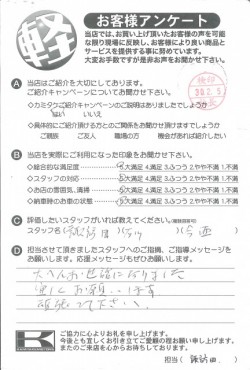 軽
お客様アンケート
当店では、お買い上げ頂いたお客様の声を可能
な限り現場に反映し、お客様により良い商品と
サービスを提供する事に努めています。
大変お手数ですが是非お声をお聞かせ下さい。
A 当店はご紹介を大切にしております。
ご紹介キャンペーンについてお聞かせ下さい。
◇カミタケご紹介キャンペーンのご説明はありましたでしょうか
はい いいえ
◇具体的にご紹介頂ける方とのご関係をお聞かせ頂けますでしょうか
ご親族 ご友人 職場の方 機会があれば紹介したい
B 当店を実際にご利用になった印象をお聞かせ下さい。
◇総合的な満足度 5.大満足 4.満足 3.ふつう 2.やや不満 1.不満
◇スタッフの対応 5.大満足 4.満足 3.ふつう 2.やや不満 1.不満
◇お店の雰囲気、清掃 5.大満足 4.満足 3.ふつう 2.やや不満 1.不満
◇納車時のお車の状態 5.大満足 4.満足 3.ふつう 2.やや不満 1.不満
C 評価したいスタッフがいれば教えてください。(複数回答可)
スタッフ名(諏訪田)
D 担当させて頂きましたスタッフへのご指導、ご指導メッセージを
お願いします。応援メッセージもぜひお願いします。
大へんお世話になりました
宜しくお願いします
頑張って下さい
K
ご協力に心よりお礼を申し上げます。
今後とも宜しくお引き立てご愛顧の程お願い申し上げます。
またのご来店を心からお待ちしております。
担当(諏訪田)